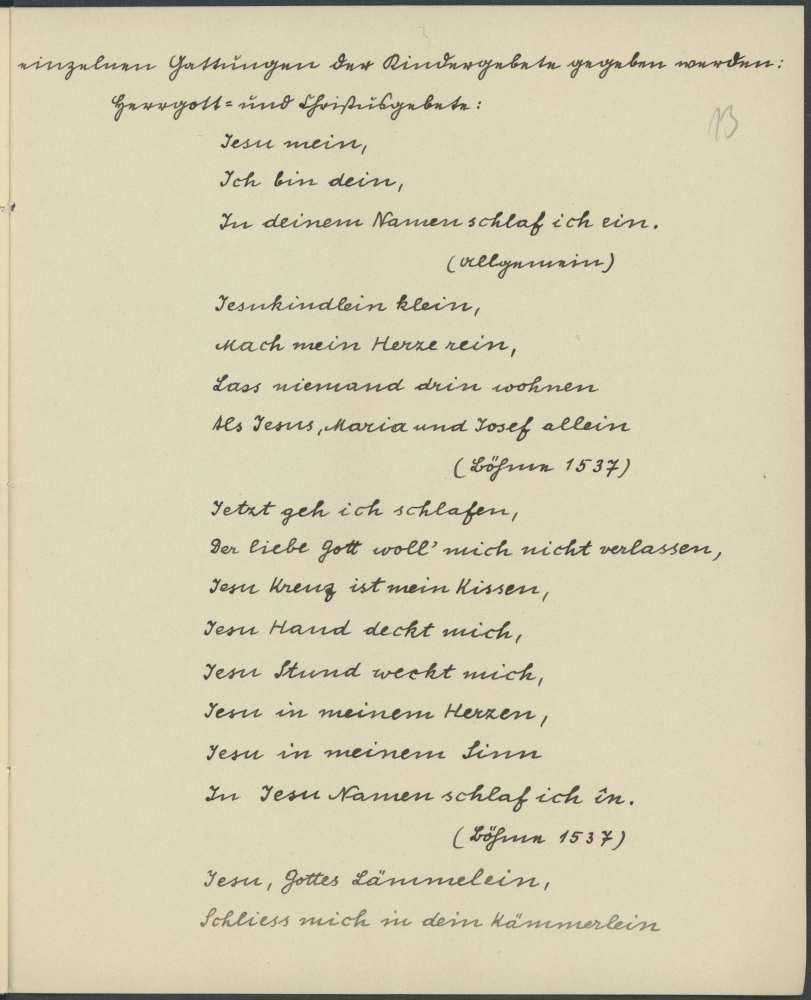 einzelnen Gattungen der Kindergebete gegeben werden:
Herrgott= und Christusgebete:
13
Jesu mein,
Ich bin dein,
In deinem Namen schlaf ich ein.
(Allgemein)
Jesukindlein klein,
Mach mein Herze rein,
Lass niemand drin wohnen
Als Jesus, Maria und Josef allein
(Böhme 1537)
Jetzt geh ich schlafen,
Der liebe Gott woll' mich nicht verlassen,
Jesu Kreuz ist mein Kissen,
Jesu Hand deckt mich,
Jesu Stund weckt mich,
Jesu in meinem Herzen,
Jesu in meinem Sinn
In Jesu Namen schlaf ich în.
(Böhme 1537)
Jesu, Gottes Lämmelein,
Schliess mich in dein Kämmerlein